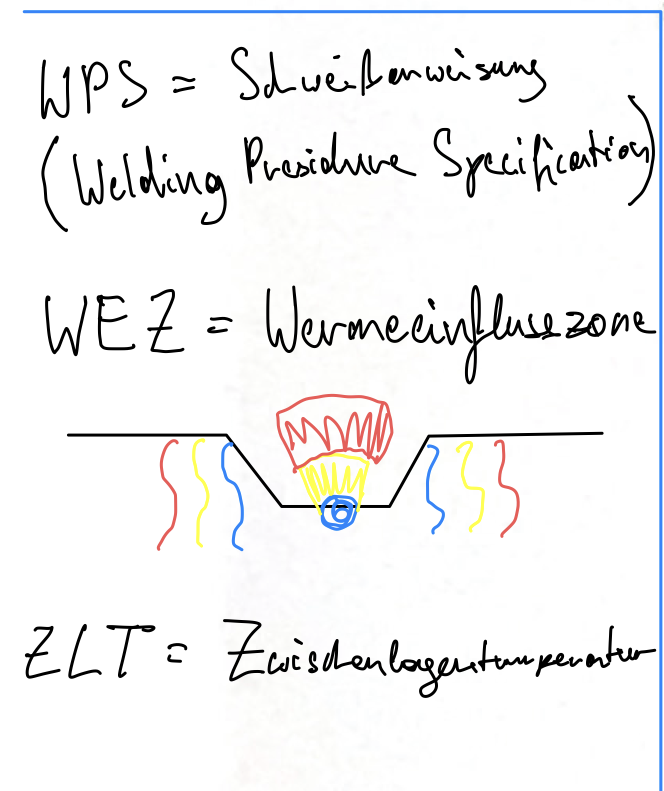 WPS = Schweißanweisung
(Welding Presidure Specification)
WEZ = Wermeeinflusszone
ZLT = Zwischenlagentemperatur